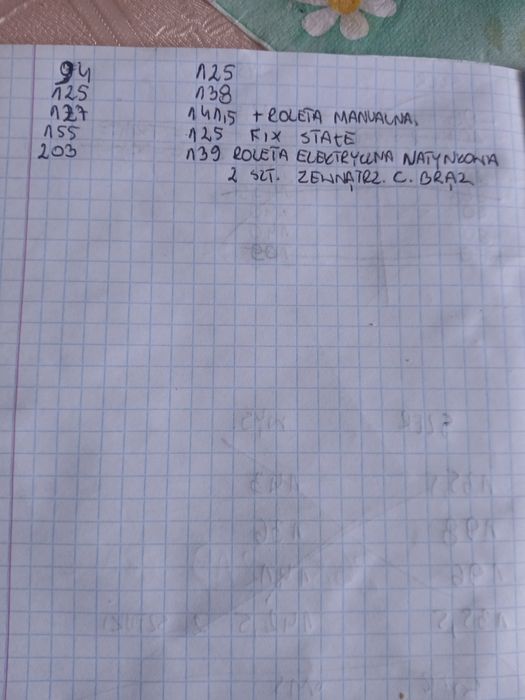 94 125
125 138
127 141,5 + ROLETA MANUALNA.
155 125 FIX STAŁE
203 139 ROLETA ELEKTRYCZNA NATYNKOWA
2 SZT. ZEWNĄTRZ. C. BRĄZ